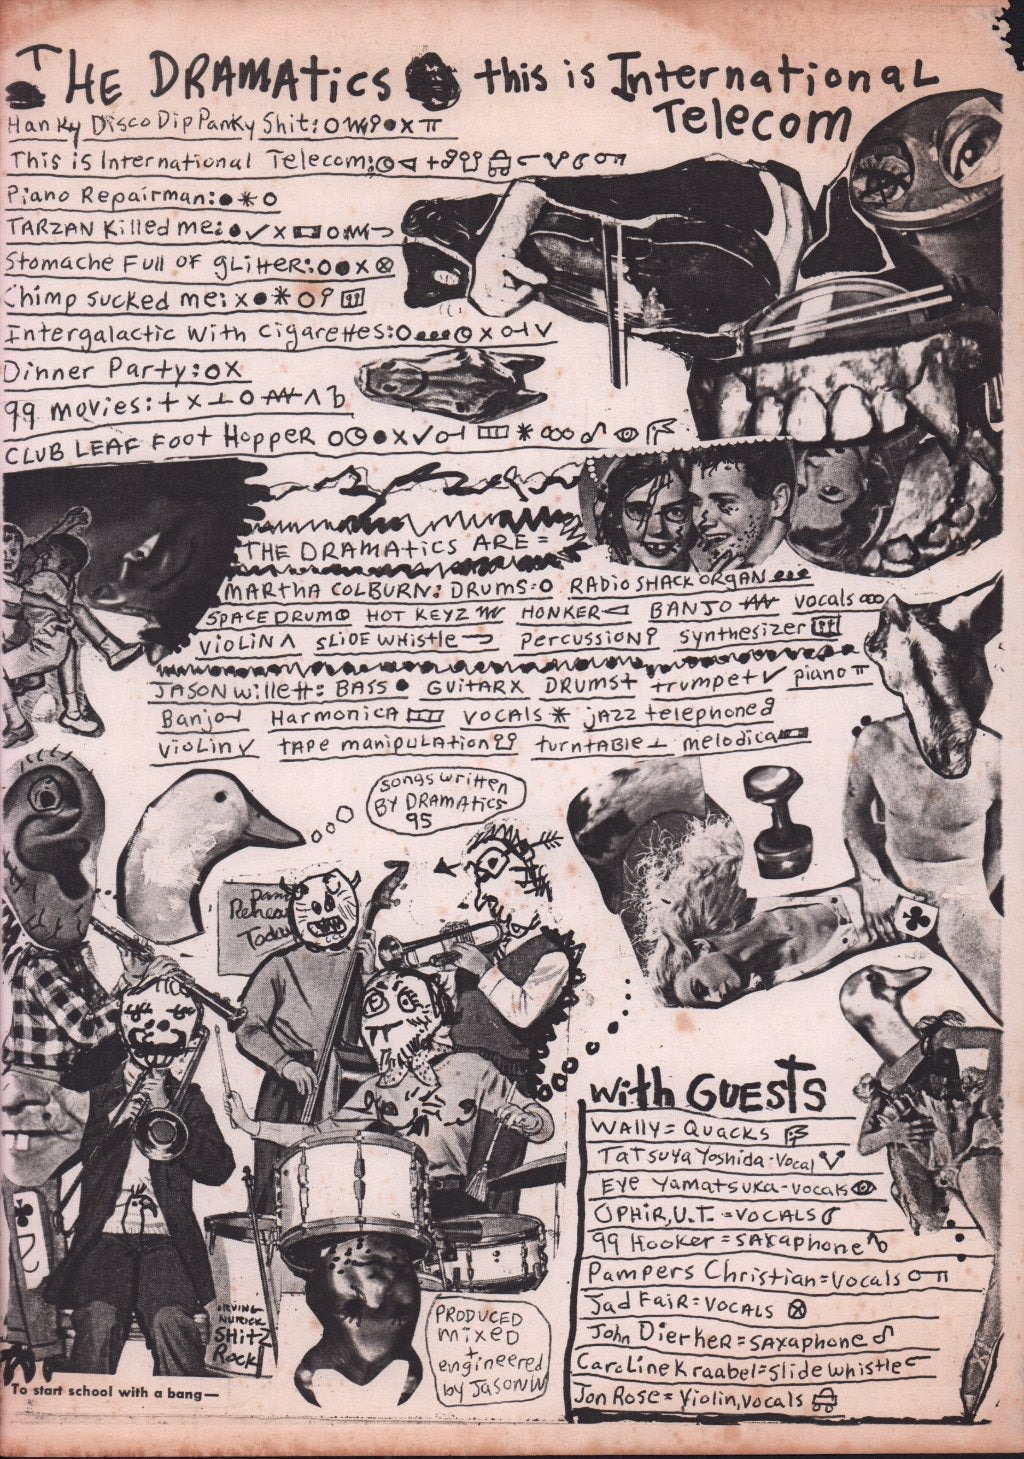 THE DRAMATICS this is International
Telecom
Hanky Disco Dip Panky Shit:
This is International Telecom:
Piano Repairman:
TARZAN Killed me:
Stomache Full OF gLiHer:
Chimp sucked me:
Intergalactic With Cigarettes:
Dinner Party:
99 movies:
CLUB LEAF Foot Hopper
THE DRAMATICS ARE =
MARTHA COLBURN: DRUMS: RADIO SHACK ORGAN
SPACE DRUM HOT KEYZ HONKER BANJO vocals
VIOLIN SLIDE WHISTLE PERCUSSION synthesizer
JASON Willett: BASS GUITAR DRUMS trumpet piano
Banjo HARMONICA VOCALS jAZZ telephone
VIOLIN TAPE MANIPULATION TURNTABLE melodica
songs written
BY DRAMATICS
95
Rehear
Today
With GUESTS
WALLY = QUACKS
TATSUYA Yoshida - Vocal
EYE YAMATSUKA - vocals
OPHIR, U.T. = VOCALS
99 HOOKER = SAXAPHONE
Pampers Christian = Vocals
Jad FAIR = VOCALS
John Dierker = SAXAPHONE
Caroline Kraabel = Slide whistle
Jon Rose = Violin, vocals
IRVING
NURICK
SHITZ
Rock
PRODUCED
mixed
+
engineered
by JASON W
To start school with a bang—